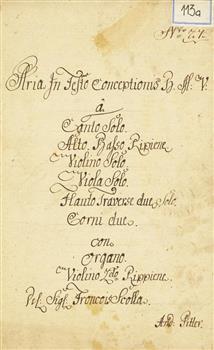 113a
Nro 27.
Aria In Festo Conceptionis B. M: V:
â
Canto Solo.
Alto, Basso, Ripiene
Con Violino Solo.
Con Viola Solo.
Flauto Traverse due Solo.
Corni due.
con
Organo.
Con Violino 2do Rippiene.
Del Sigl: Francois Scolla.
And: Pitter.